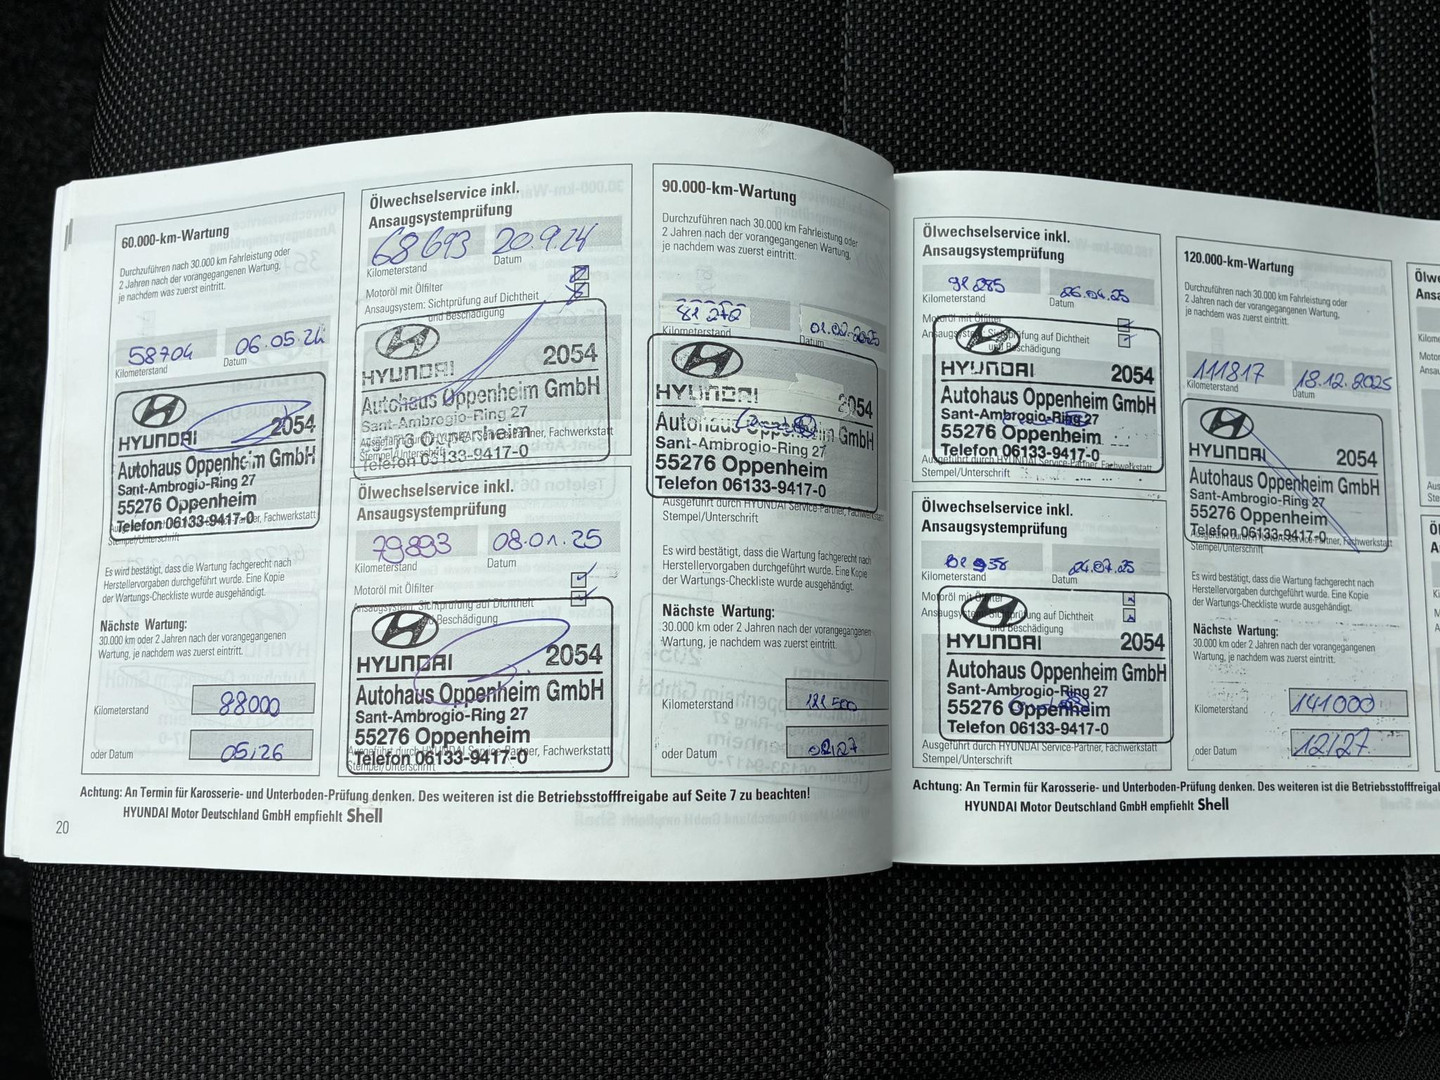 60.000-km-Wartung
Durchzuführen nach 30.000 km Fahrleistung oder
2 Jahren nach der vorangegangenen Wartung,
je nachdem was zuerst eintritt.
58704 06.05.24
Kilometerstand Datum
HYUNDAI 2054
Autohaus Oppenheim GmbH
Sant-Ambrogio-Ring 27
55276 Oppenheim
Telefon 06133-9417-0
Partner, Fachwerkstatt
Stempel/Unterschrift
Es wird bestätigt, dass die Wartung fachgerecht nach
Herstellervorgaben durchgeführt wurde. Eine Kopie
der Wartungs-Checkliste wurde ausgehändigt.
Nächste Wartung:
30.000 km oder 2 Jahren nach der vorangegangenen
Wartung, je nachdem was zuerst eintritt.
Kilometerstand 88000
oder Datum 05.26
Ölwechselservice inkl.
Ansaugsystemprüfung
68693 20.9.24
Kilometerstand Datum
Motoröl mit Ölfilter
Ansaugsystem: Sichtprüfung auf Dichtheit
und Beschädigung
HYUNDAI 2054
Autohaus Oppenheim GmbH
Sant-Ambrogio-Ring 27
Oppenheim
Partner, Fachwerkstatt
Stempel/Unterschrift
Telefon 06133-9417-0
Ölwechselservice inkl.
Ansaugsystemprüfung
79893 08.01.25
Kilometerstand Datum
Motoröl mit Ölfilter
Ansaugsystem: Sichtprüfung auf Dichtheit
Beschädigung
HYUNDAI 2054
Autohaus Oppenheim GmbH
Sant-Ambrogio-Ring 27
55276 Oppenheim
Ausgeführt durch HYUNDAI Service-Partner, Fachwerkstatt
Telefon 06133-9417-0
Stempel/Unterschrift
90.000-km-Wartung
Durchzuführen nach 30.000 km Fahrleistung oder
2 Jahren nach der vorangegangenen Wartung,
je nachdem was zuerst eintritt.
Kilometerstand Datum
HYUNDAI 2054
Autohaus Oppenheim GmbH
Sant-Ambrogio-Ring 27
55276 Oppenheim
Telefon 06133-9417-0
Ausgeführt durch HYUNDAI Service-Partner, Fachwerkstatt
Stempel/Unterschrift
Es wird bestätigt, dass die Wartung fachgerecht nach
Herstellervorgaben durchgeführt wurde. Eine Kopie
der Wartungs-Checkliste wurde ausgehändigt.
Nächste Wartung:
30.000 km oder 2 Jahren nach der vorangegangenen
Wartung, je nachdem was zuerst eintritt.
Kilometerstand
oder Datum 02/27
Achtung: An Termin für Karosserie- und Unterboden-Prüfung denken. Des weiteren ist die Betriebsstofffreigabe auf Seite 7 zu beachten!
HYUNDAI Motor Deutschland GmbH empfiehlt Shell
20
Ölwechselservice inkl.
Ansaugsystemprüfung
Kilometerstand Datum
Motoröl mit Ölfilter
Sichtprüfung auf Dichtheit
und Beschädigung
HYUNDAI 2054
Autohaus Oppenheim GmbH
Sant-Ambrogio-Ring 27
55276 Oppenheim
Telefon 06133-9417-0
Ausgeführt durch HYUNDAI Service-Partner, Fachwerkstatt
Stempel/Unterschrift
Ölwechselservice inkl.
Ansaugsystemprüfung
24.07.25
Kilometerstand Datum
Motoröl mit Ölfilter
Sichtprüfung auf Dichtheit
und Beschädigung
HYUNDAI 2054
Autohaus Oppenheim GmbH
Sant-Ambrogio-Ring 27
55276 Oppenheim
Telefon 06133-9417-0
Ausgeführt durch HYUNDAI Service-Partner, Fachwerkstatt
Stempel/Unterschrift
120.000-km-Wartung
Durchzuführen nach 30.000 km Fahrleistung oder
2 Jahren nach der vorangegangenen Wartung,
je nachdem was zuerst eintritt.
111817 18.12.2025
Kilometerstand Datum
HYUNDAI 2054
Autohaus Oppenheim GmbH
Sant-Ambrogio-Ring 27
55276 Oppenheim
Telefon 06133-9417-0
Partner, Fachwerkstatt
Stempel/Unterschrift
Es wird bestätigt, dass die Wartung fachgerecht nach
Herstellervorgaben durchgeführt wurde. Eine Kopie
der Wartungs-Checkliste wurde ausgehändigt.
Nächste Wartung:
30.000 km oder 2 Jahren nach der vorangegangenen
Wartung, je nachdem was zuerst eintritt.
Kilometerstand 141000
oder Datum 12/27
Achtung: An Termin für Karosserie- und Unterboden-Prüfung denken. Des weiteren ist die Betriebsstofffreigabe
HYUNDAI Motor Deutschland GmbH empfiehlt Shell